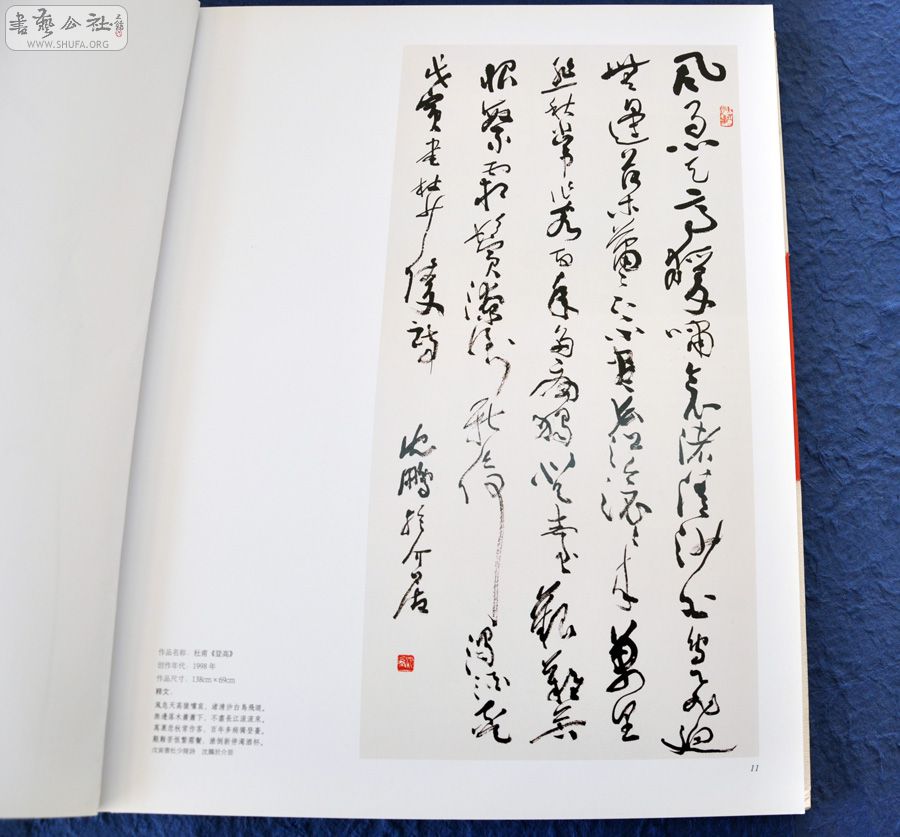 書藝公社
WWW.SHUFA.ORG
風急天高猨嘯哀渚清沙白鳥飛迴
無邊落木蕭〻下不盡長江滚〻来萬里
悲秋常作客百年多病獨登臺艱難苦
恨繁霜鬢潦倒新停濁酒杯
戊寅書杜少陵詩
沈鵬於介居
作品名称：杜甫《登高》
创作年代：1998 年
作品尺寸：138cm×69cm
释文：
風急天高猿嘯哀，渚清沙白鳥飛迴。
無邊落木蕭蕭下，不盡長江滚滚來。
萬里悲秋常作客，百年多病獨登臺。
艱難苦恨繁霜鬢，潦倒新停濁酒杯。
戊寅書杜少陵詩 沈鵬於介居
11